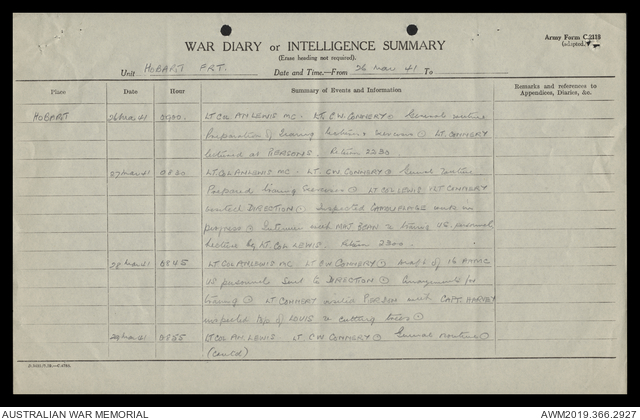 Army Form C.2118
(adapted.)
WAR DIARY or INTELLIGENCE SUMMARY
(Erase heading not required).
Unit HOBART FRT. Date and Time.—From 26 Mar 41 To
Place Date Hour Summary of Events and Information Remarks and references to Appendices, Diaries, &c.
HOBART 26 Mar 41 0900. LT COL A.H. LEWIS MC. LT C.W. CONNERY General routine
Preparation of training LT. CONNERY
lectured at Return 2230
27 Mar 41 0830 LT COL A.H. LEWIS MC. LT. C.W. CONNERY General routine
Prepared training LT COL LEWIS LT CONNERY
visited DIRECTION inspected CAMOUFLAGE work in
progress Interview with MAJ BEAN training personnel
Lecture by LT. COL LEWIS. Return 2300.
28 Mar 41 0845 LT COL A.H. LEWIS MC LT C.W. CONNERY Draft of 16
personnel sent to DIRECTION Arrangements for
training LT CONNERY visited with CAPT. HARVEY
inspected of LOUIS cutting trees
29 Mar 41 0855 LT COL A.H. LEWIS LT C.W. CONNERY General routine
(contd)
AUSTRALIAN WAR MEMORIAL
AWM2019.366.2927